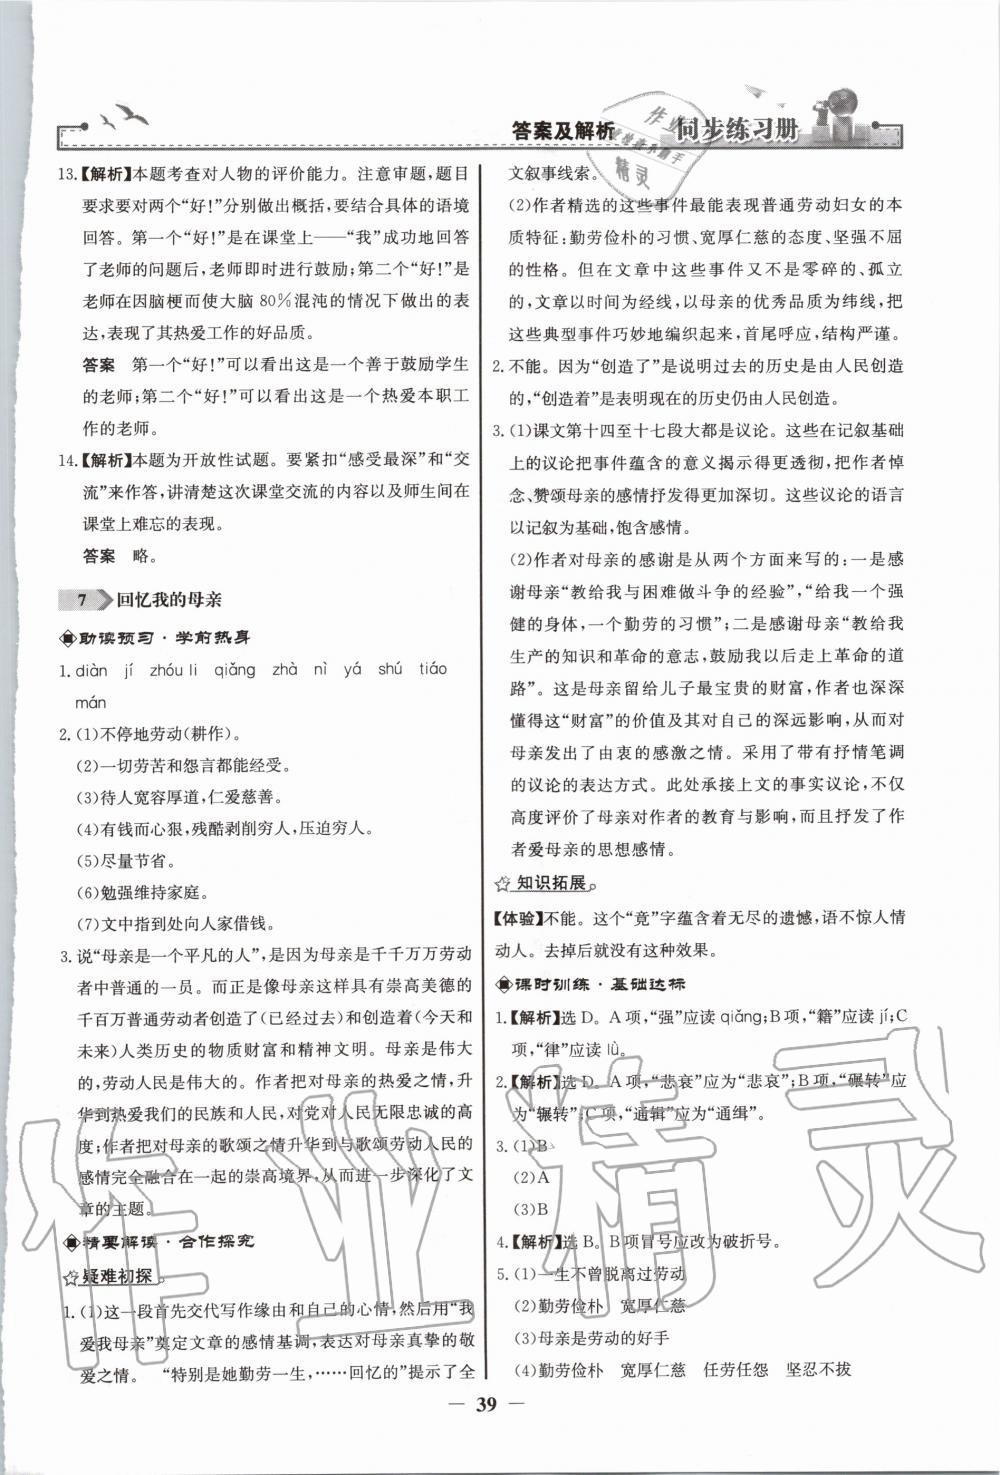 答案及解析
同步练习册
13.【解析】本题考查对人物的评价能力。注意审题,题目
要求要对两个“好!”分别做出概括,要结合具体的语境
回答。第一个“好!”是在课堂上——“我”成功地回答
了老师的问题后,老师即时进行鼓励;第二个“好!”是
老师在因脑梗而使大脑80%混沌的情况下做出的表
达,表现了其热爱工作的好品质。
答案　第一个“好!”可以看出这是一个善于鼓励学生
的老师;第二个“好!”可以看出这是一个热爱本职工
作的老师。
14.【解析】本题为开放性试题。要紧扣“感受最深”和“交
流”来作答,讲清楚这次课堂交流的内容以及师生间在
课堂上难忘的表现。
答案　略。
7 回忆我的母亲
助读预习·学前热身
1. diàn jí zhóu li qiǎng zhà nì yá shú tiáo
mán
2. (1)不停地劳动(耕作)。
(2)一切劳苦和怨言都能经受。
(3)待人宽容厚道,仁爱慈善。
(4)有钱而心狠,残酷剥削穷人,压迫穷人。
(5)尽量节省。
(6)勉强维持家庭。
(7)文中指到处向人家借钱。
3. 说“母亲是一个平凡的人”,是因为母亲是千千万万劳动
者中普通的一员。而正是像母亲这样具有崇高美德的
千百万普通劳动者创造了(已经过去)和创造着(今天和
未来)人类历史的物质财富和精神文明。母亲是伟大
的,劳动人民是伟大的。作者把对母亲的热爱之情,升
华到热爱我们的民族和人民,对党对人民无限忠诚的高
度;作者把对母亲的歌颂之情升华到与歌颂劳动人民的
感情完全融合在一起的崇高境界,从而进一步深化了文
章的主题。
精要解读·合作探究
疑难初探
1. (1)这一段首先交代写作缘由和自己的心情,然后用“我
爱我母亲”奠定文章的感情基调,表达对母亲真挚的敬
爱之情。　“特别是她勤劳一生,……回忆的”提示了全
文叙事线索。
(2)作者精选的这些事件最能表现普通劳动妇女的本
质特征:勤劳俭朴的习惯、宽厚仁慈的态度、坚强不屈
的性格。但在文章中这些事件又不是零碎的、孤立
的,文章以时间为经线,以母亲的优秀品质为纬线,把
这些典型事件巧妙地编织起来,首尾呼应,结构严谨。
2. 不能。因为“创造了”是说明过去的历史是由人民创造
的,“创造着”是表明现在的历史仍由人民创造。
3. (1)课文第十四至十七段大都是议论。这些在记叙基础
上的议论把事件蕴含的意义揭示得更透彻,把作者悼
念、赞颂母亲的感情抒发得更加深切。这些议论的语言
以记叙为基础,饱含感情。
(2)作者对母亲的感谢是从两个方面来写的:一是感
谢母亲“教给我与困难做斗争的经验”,“给我一个强
健的身体,一个勤劳的习惯”;二是感谢母亲“教给我
生产的知识和革命的意志,鼓励我以后走上革命的道
路”。这是母亲留给儿子最宝贵的财富,作者也深深
懂得这“财富”的价值及其对自己的深远影响,从而对
母亲发出了由衷的感激之情。采用了带有抒情笔调
的议论的表达方式。此处承接上文的事实议论,不仅
高度评价了母亲对作者的教育与影响,而且抒发了作
者爱母亲的思想感情。
知识拓展
【体验】不能。这个“竟”字蕴含着无尽的遗憾,语不惊人情
动人。去掉后就没有这种效果。
课时训练·基础达标
1.【解析】选D。A项,“强”应读qiǎng;B项,“籍”应读jí;C
项,“律”应读lǜ。
2.【解析】选D。A项,“悲衰”应为“悲哀”;B项,“碾转”应
为“辗转”;C项,“通辑”应为“通缉”。
3. (1)B
(2)A
(3)B
4.【解析】选B。B项冒号应改为破折号。
5. (1)一生不曾脱离过劳动
(2)勤劳俭朴　宽厚仁慈
(3)母亲是劳动的好手
(4)勤劳俭朴　宽厚仁慈　任劳任怨　坚忍不拔
— 39 —
作业精灵